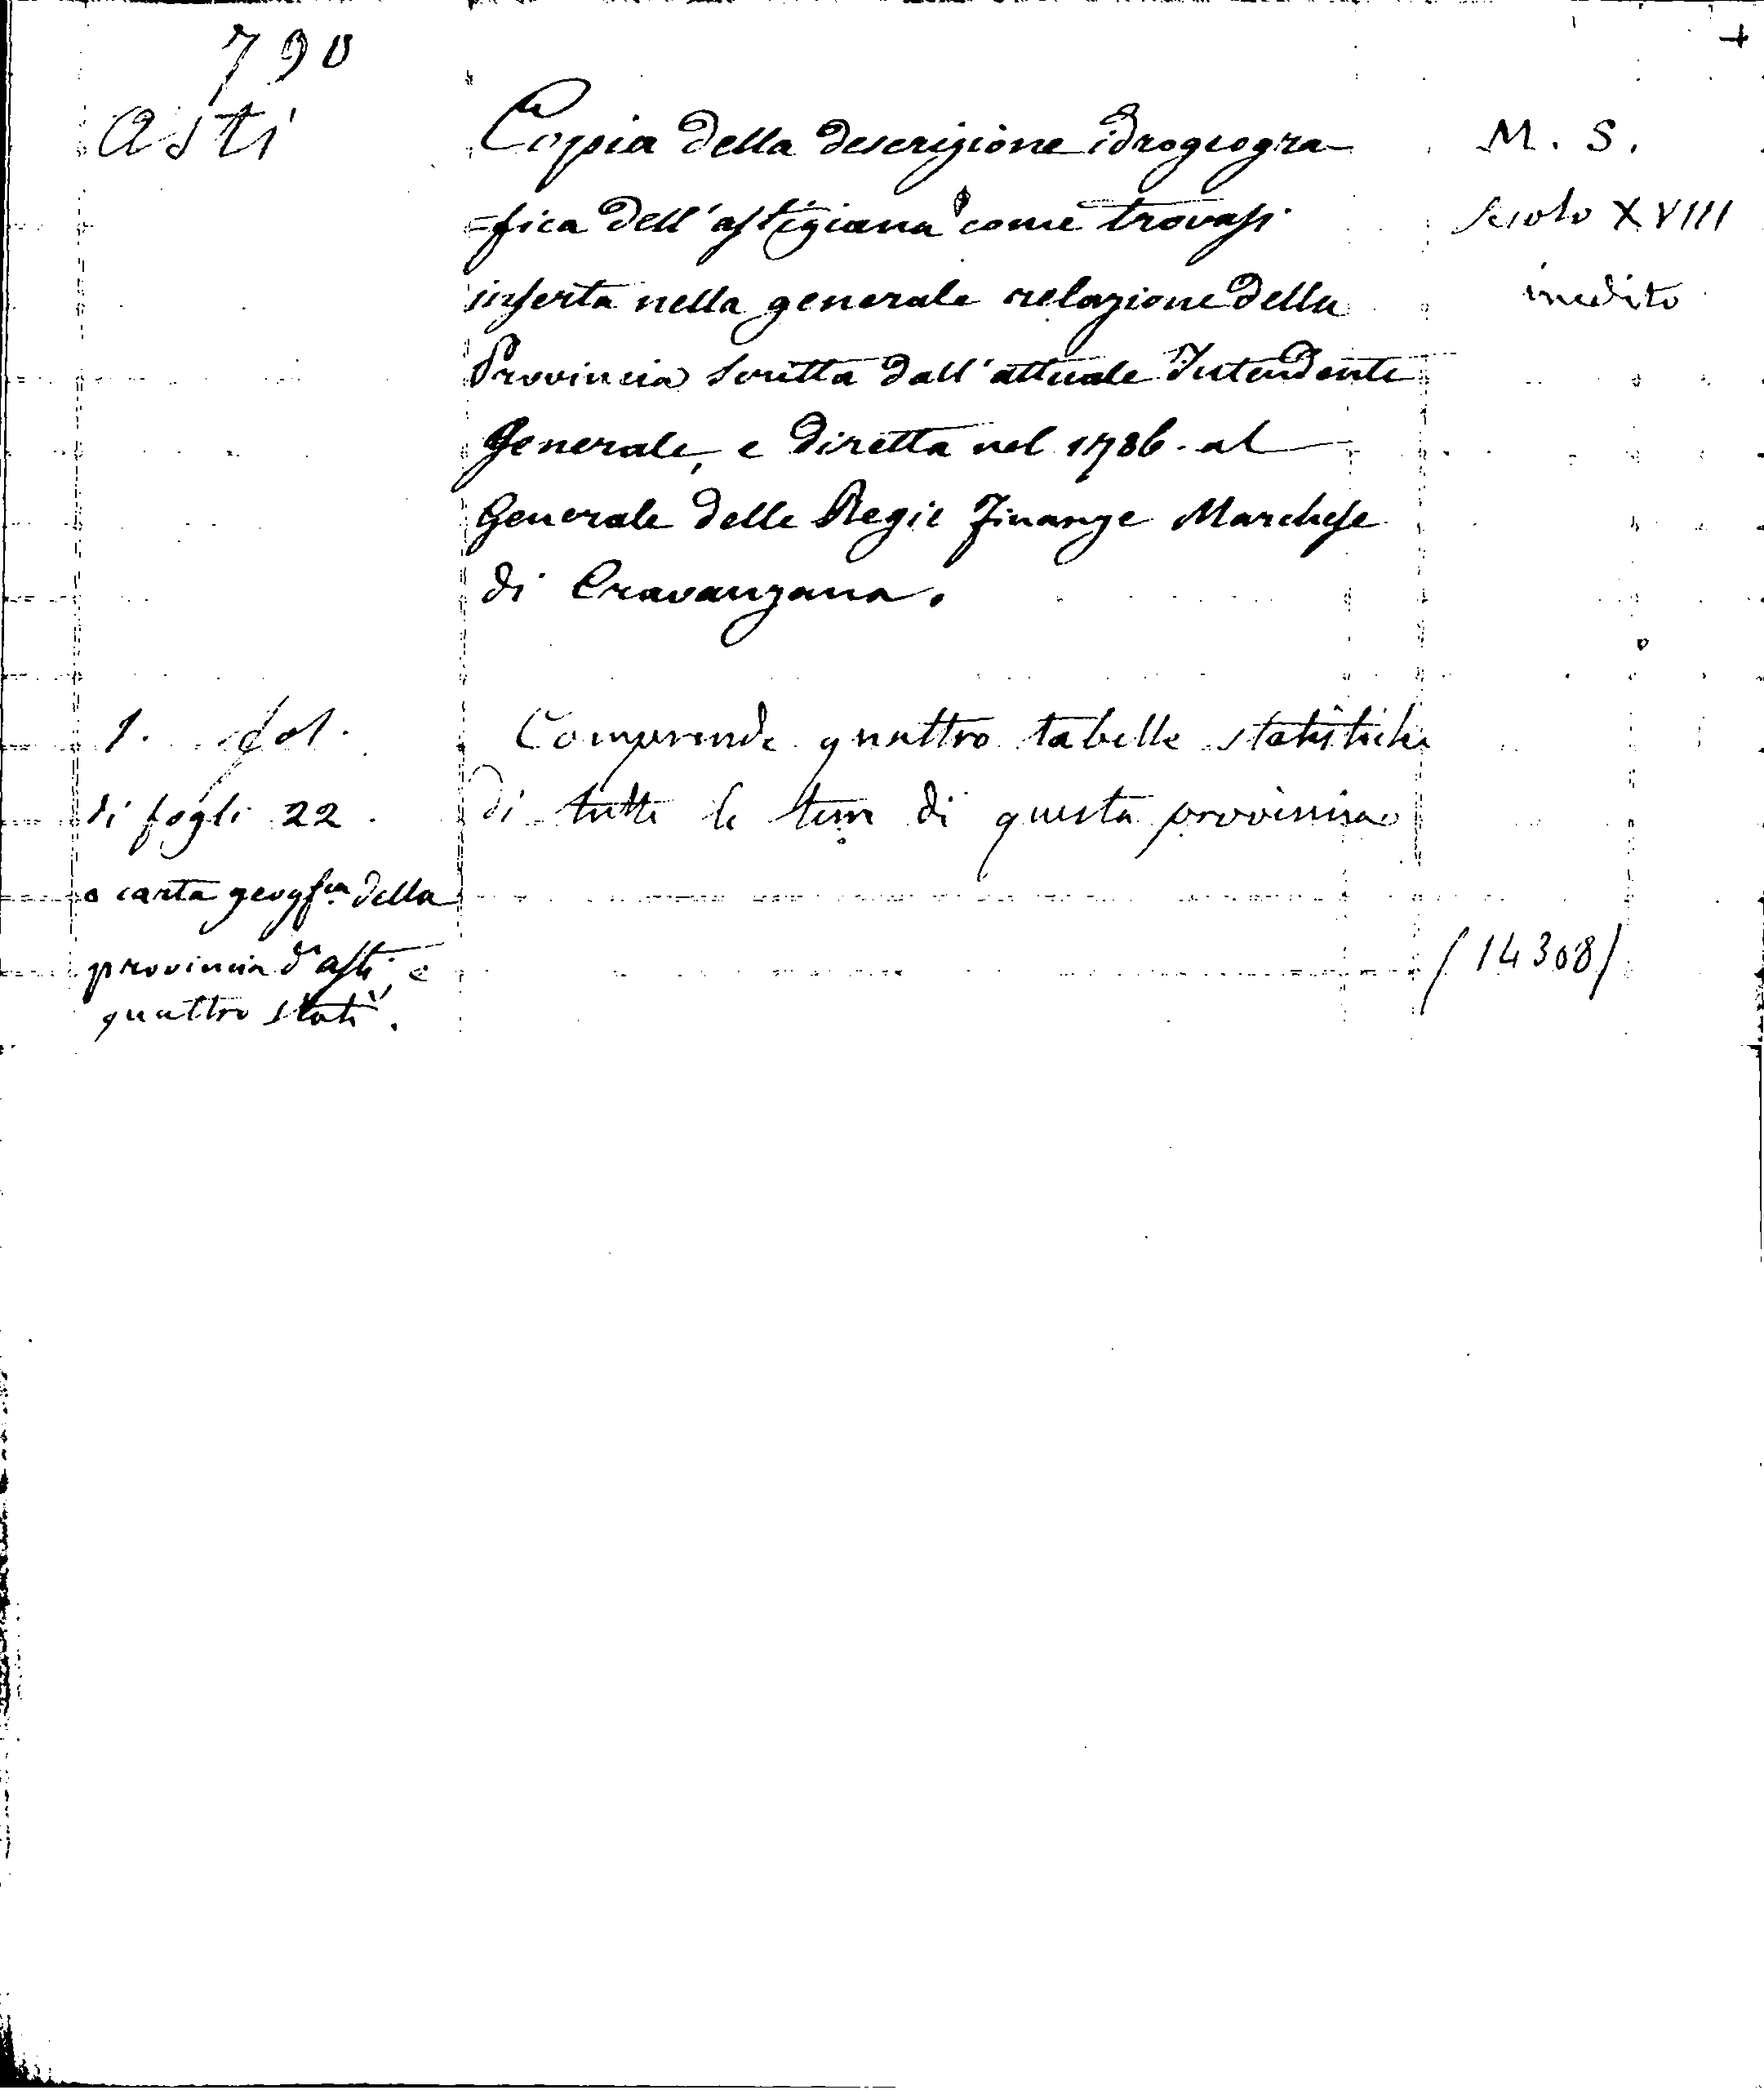 790
+
Asti
Copia della descrizione idrogeogra-
=fica dell'astigiana come trovasi
inserta nella generale relazione della
Provincia scritta dall'attuale Intendente
Generale, e diretta nel 1786. al
Generale delle Regie Finanze Marchese
di Cravanzana.
M. S.
secolo XVIII
inedito
1. fol.
di fogli 22.
o carta geogf.ca della
provincia d'Asti, e
quattro stati.
Comprende quattro tabelle statistiche
di tutte le terre di questa provincia
(14308)